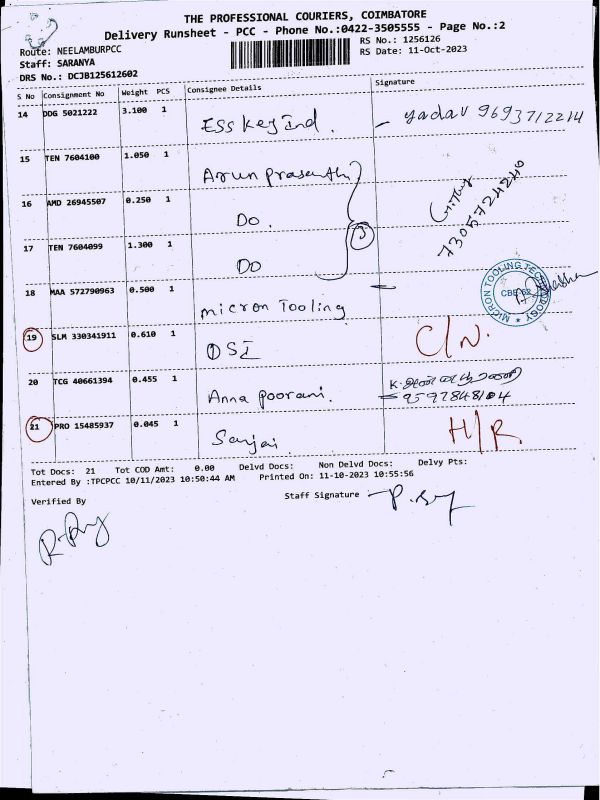 THE PROFESSIONAL COURIERS, COIMBATORE
Delivery Runsheet - PCC - Phone No.:0422-3505555 - Page No.:2
Route: NEELAMBURPCC
RS No.: 1256126
Staff: SARANYA
RS Date: 11-Oct-2023
DRS No.: DCJB125612602
S No Consignment No Weight PCS Consignee Details Signature
14 DDG 5021222 3.100 1 ESS Key Ind. yadav 9693712214
15 TEN 7604100 1.050 1 Arun Prasanth
16 AMD 26945507 0.250 1 Do. 7305724246
17 TEN 7604099 1.300 1 Do
18 MAA 572790963 0.500 1 micron Tooling
MICRON TOOLING TECHNOLOGY
19 SLM 330341911 0.610 1 DSI C/N.
20 TCG 40661394 0.455 1 Anna Poorani. 9597848104
21 PRO 15485937 0.045 1 Sanjai H/R
Tot Docs: 21 Tot COD Amt: 0.00 Delvd Docs: Non Delvd Docs: Delvy Pts:
Entered By :TPCPCC 10/11/2023 10:50:44 AM Printed On: 11-10-2023 10:55:56
Verified By Staff Signature